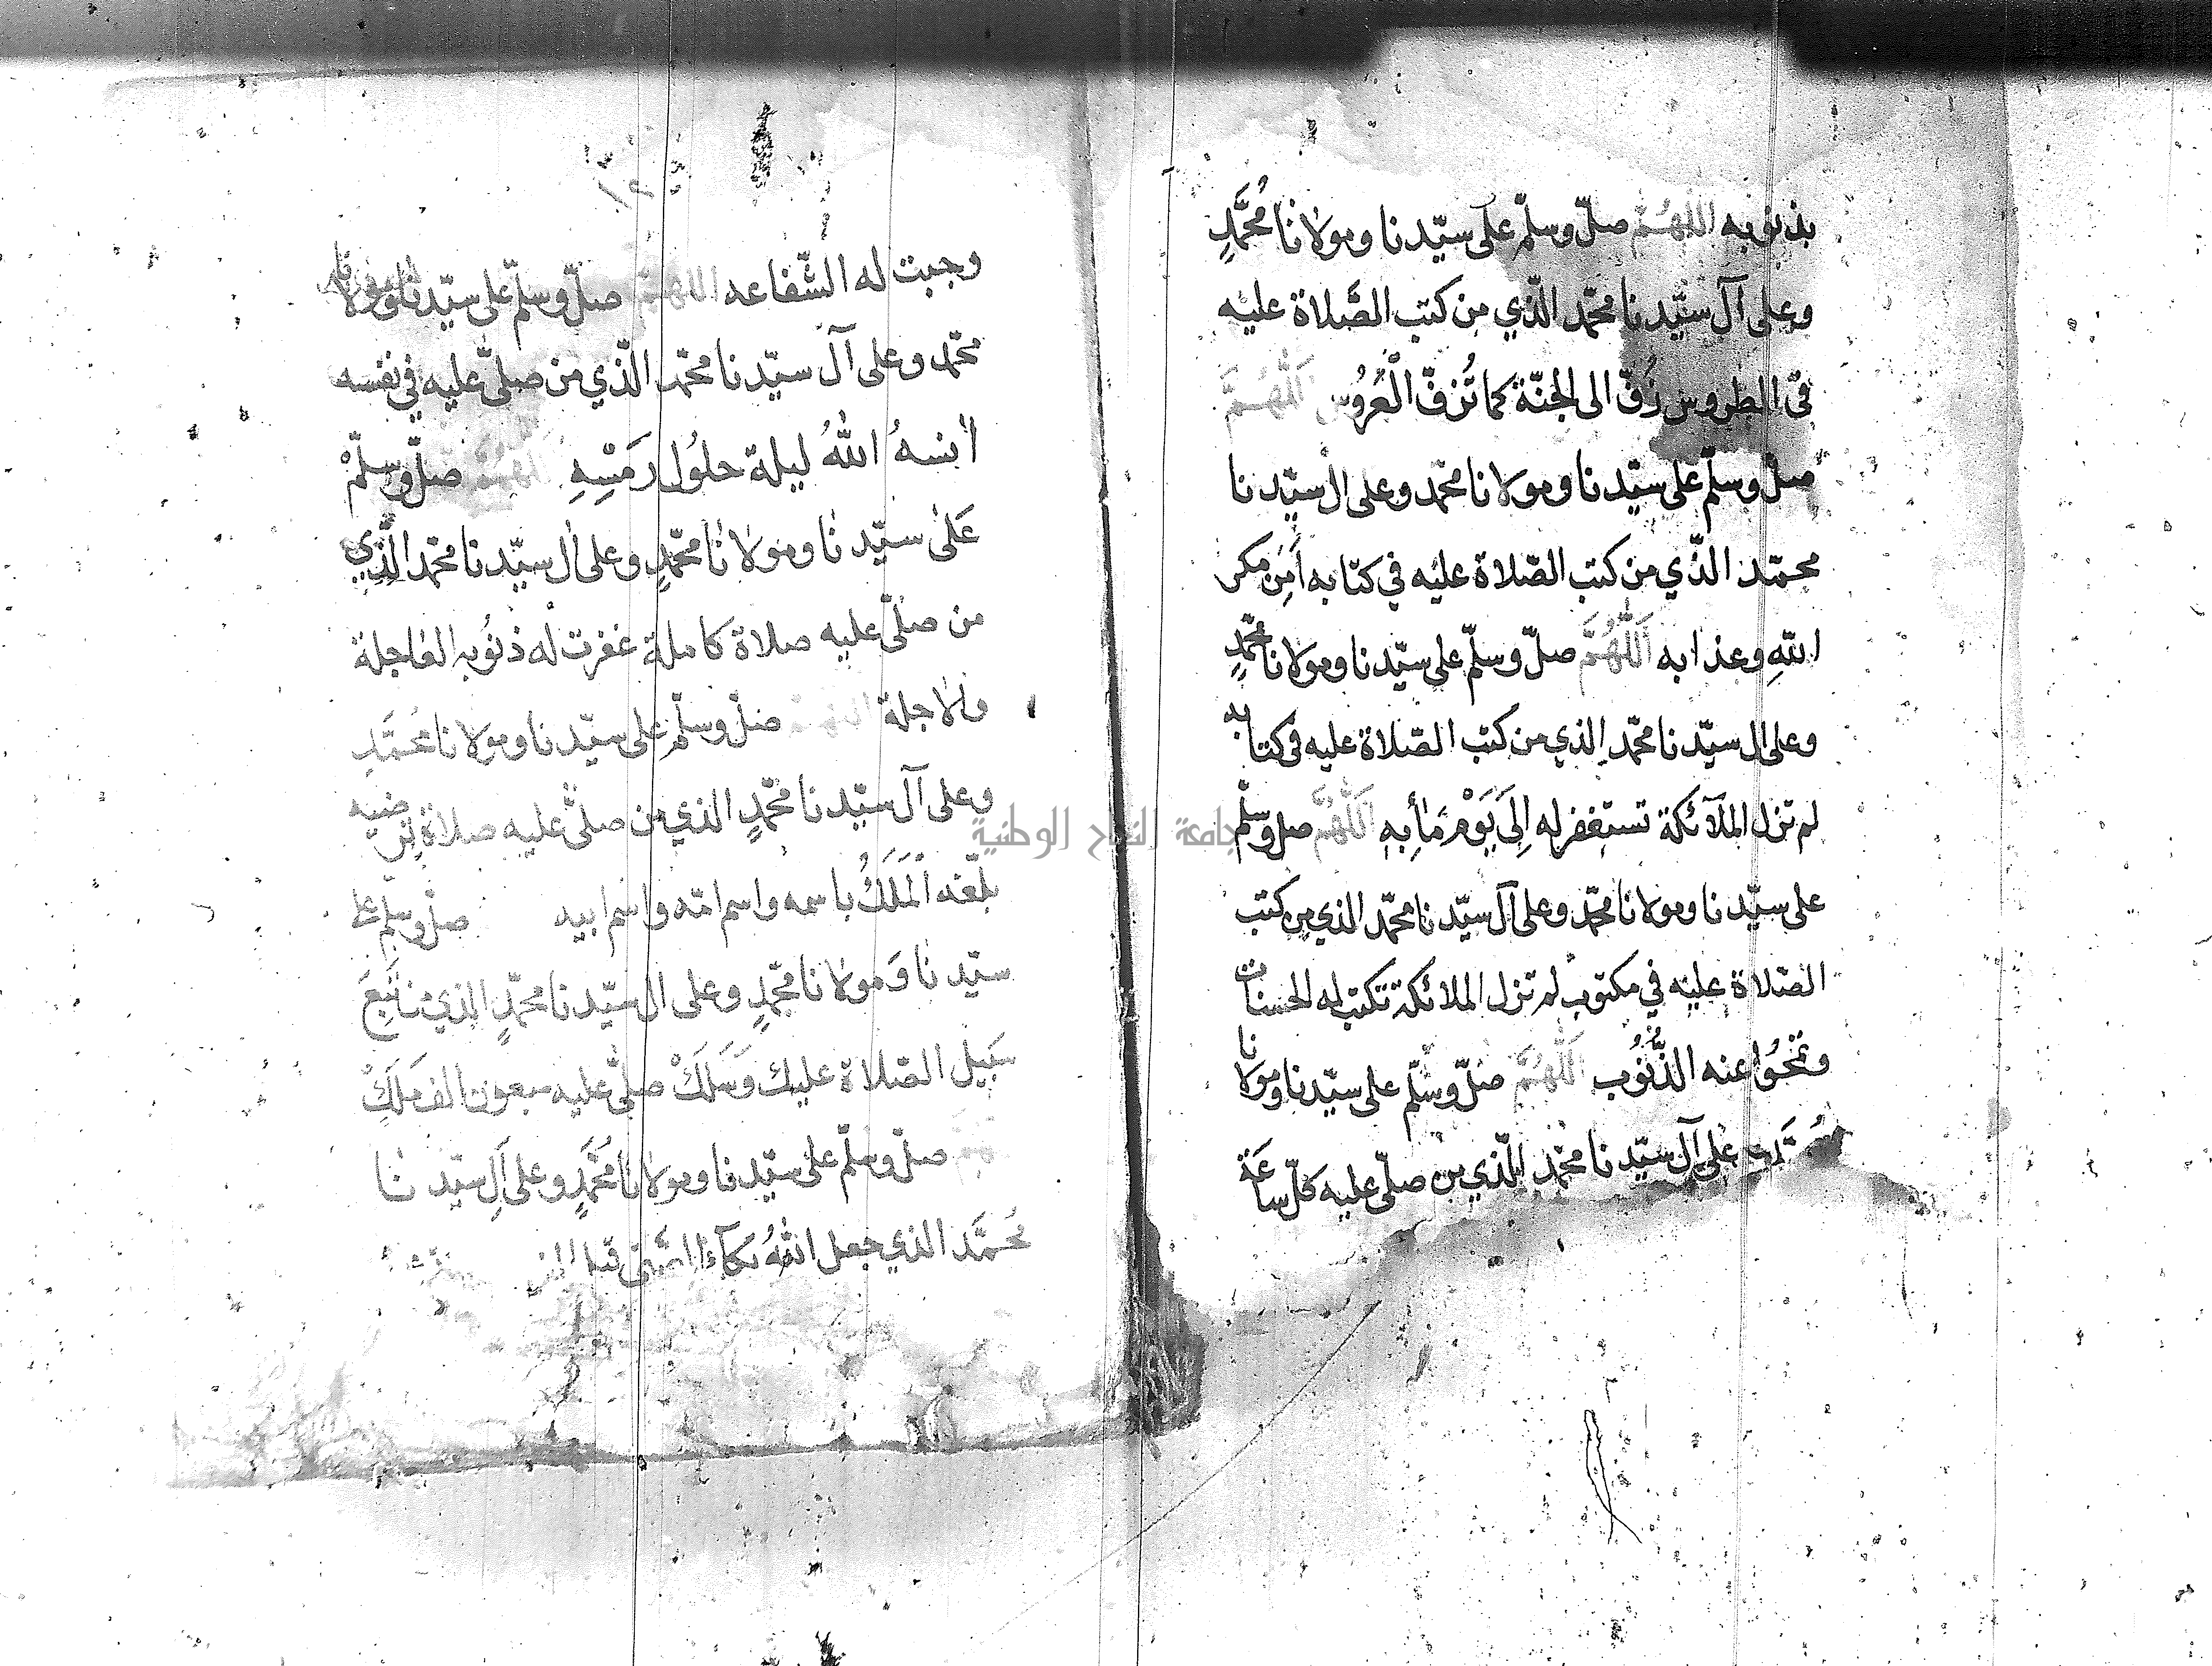 بذنوبه اللهُمَّ صلّ وسلّم على سيّدنا ومولانا مُحَمَّدٍ
وعلى آل سيّدنا محمّد الّذي من كتب الصَّلاة عليْه
في الطروس زُفّ الى الجنّة كما تُزفّ الْعَرُوس اَللّٰهُمَّ
صلّ وسلّم على سيّدنا ومولانا محمّد وعلى ال سيّدنا
محمّد الذّي من كتب الصّلاة عليْه في كتابه أَمِنَ مكر
اللّٰهِ وعذابه اَللّٰهُمَّ صلّ وسلّم على سيّدنا ومولانا محمّدٍ
وعلى ال سيّدنا محمّد الذي من كتب الصّلاة عليه في كتابه
لم تزل الملَآئكة تستغفر له اِلَى يَوْم مَاٰبِهِ اَللّٰهُمَّ صل وسلّم
على سيّدنا ومولانا محمّد وعلى آل سيّدنا محمّد الذي من كتب
الصّلاة عليْه في مكتوب لم تزل الملائكة تكتب له الحسنات
وتمْحُوا عنه الذُّنُوب اَللّٰهُمَّ صَلّ وسَلّم على سيّدنا ومولانا
مُحَمَّد وعلى آل سيّدنا محمّد الّذي من صلّى عليه كلّ سَاعَة
وجبت له الشّفاعه اللهمّ صلّ وسلّم على سيّدنا ومولانا
محمّد وعلى آل سيّدنا محمّد الّذي من صلّى عليه في نفسه
اٰنسهُ اللّٰهُ ليلة حلُول رَمْسِهِ اللهُمَّ صلّ وسلّمْ
عَلىٰ سيّدنا ومولانا محمّدٍ وعلى ال سيّدنا محمّد الّذِي
من صلّى عليه صلاة كاملة غفرت له ذنُوبه العاجلة
والاجلة اللهمّ صلّ وسلّم على سيّدنا ومولانا مُحَمَّدٍ
وعلى آل سيّدنا محمّدٍ الذي من صلّى عليه صلاة ترضيه
بلّغه الْمَلَكُ باسمه واسم امّه واسم ابيه صلّ وسلّم على
سيّدنا وَمولانا محمّدٍ وعلى ال سيّدنا محمّدٍ الذي من تَبِعَ
سَبيل الصّلاة عليك وَسَلَكْ صلّى عليه سبعون الف مَلَكْ
صلّ وسلّم على سيّدنا ومولانا مُحَمَّدٍ وعلى آل سيّدنا
مُحَمَّد الذي جعل اللّٰهُ
جامعة النجاح الوطنية